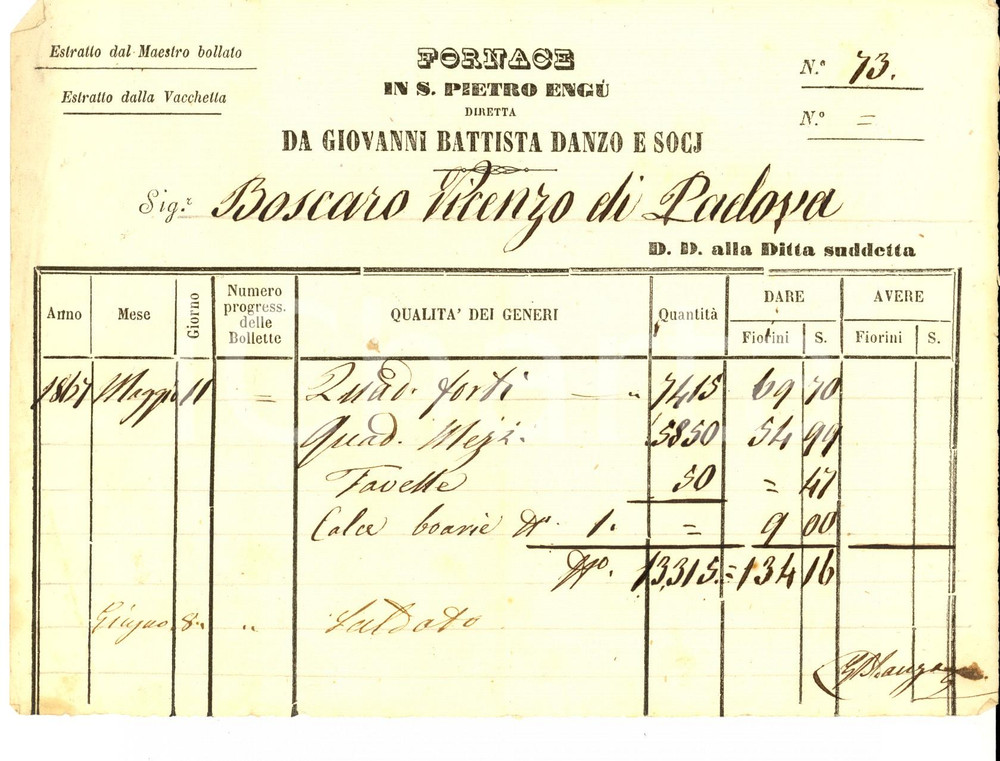 Estratto dal Maestro bollato
Estratto dalla Vacchetta
FORNACE
IN S. PIETRO ENGÚ
DIRETTA
DA GIOVANNI BATTISTA DANZO E SOCJ
N.º 73.
N.º =
Sig.r Boscaro Vicenzo di Padova
D. D. alla Ditta suddetta
Anno Mese Giorno Numero progress. delle Bollette QUALITA' DEI GENERI Quantità DARE AVERE
Fiorini S. Fiorini S.
1867 Maggio 11 = Quad. forti — " 7415 69 70
Quad. Mezz. 5850 54 99
Tavelle 50 = 47
Calce boarie Nº 1. = 9 00
Nº. 13,315.= 134 16
Giugno 8 " " Saldato